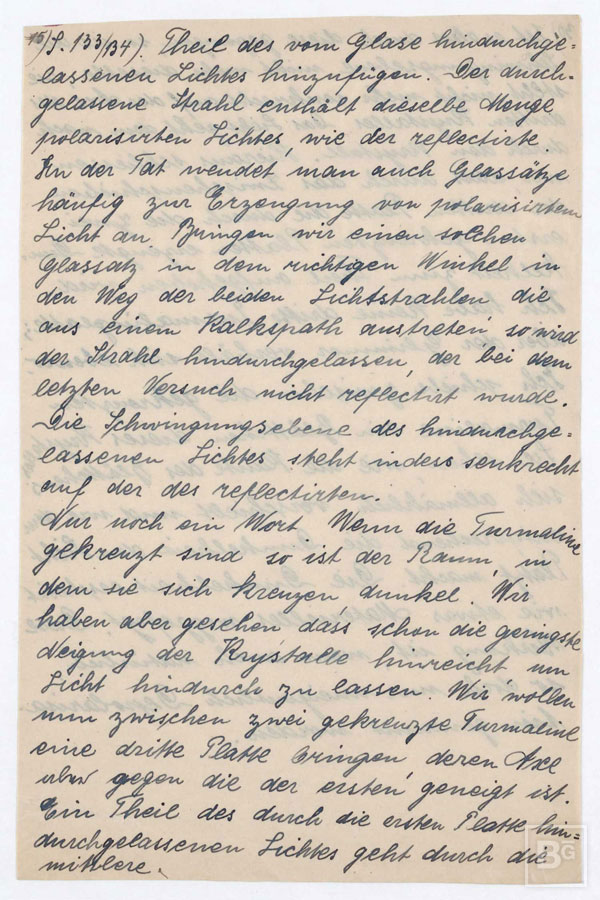 15) S. 133/134). Theil des vom Glase hindurchge=
lassenen Lichtes hinzufügen. Der durch-
gelassene Strahl enthält dieselbe Menge
polarisirten Lichtes, wie der reflectirte.
In der Tat wendet man auch Glassätze
häufig zur Erzeugung von polarisirtem
Licht an. Bringen wir einen solchen
Glassatz in dem richtigen Winkel in
den Weg der beiden Lichtstrahlen, die
aus einem Kalkspath austreten, so wird
der Strahl hindurchgelassen, der bei dem
letzten Versuch nicht reflectirt wurde.
Die Schwingungsebene des hindurchge=
lassenen Lichtes steht indess senkrecht
auf der des reflectirten.
Nur noch ein Wort. Wenn die Turmaline
gekreuzt sind, so ist der Raum, in
dem sie sich kreuzen dunkel. Wir
haben aber gesehen dass schon die geringste
Neigung der Krystalle hinreicht um
Licht hindurch zu lassen. Wir wollen
nun zwischen zwei gekreuzte Turmaline
eine dritte Platte bringen, deren Axe
gegen die der ersten geneigt ist.
Ein Theil des durch die ersten Platte hin=
durchgelassenen Lichtes geht durch die
mittlere.
BG